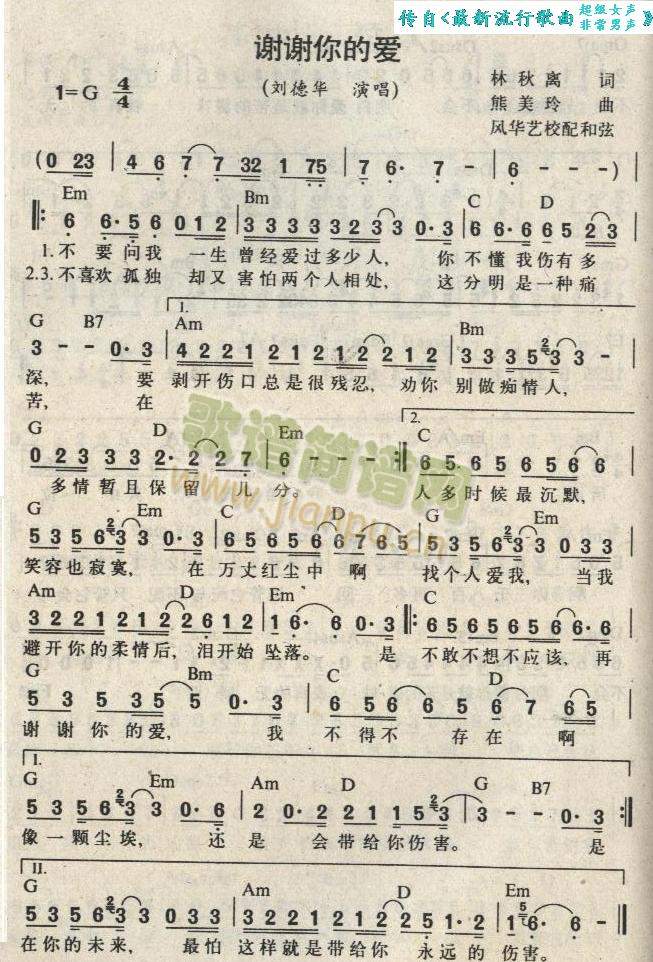 传自<最新流行歌曲 超级女声 非常男声》
谢谢你的爱
(刘德华 演唱)
1=G 4/4
林秋离 词
熊美玲 曲
风华艺校配和弦
(0 23 | 4 6 7 7 32 1 75 | 7 6· 7 - | 6 - - - )|
Em Bm C D
‖: 6 6·5 6 0 1 2 | 3 3 3 3 3 3 2 3 3 0·3 | 6 6·6 6 6 5 2 3 |
1.不 要问我 一生 曾经爱过多少人, 你 不懂我伤有多
2.3.不喜欢 孤独 却又 害怕两个人相处, 这分明是一种痛
G B7 1. Am Bm
3 - - 0·3 | 4 2 2 1 2 1 2 1 2 2 1 2 | 3 3 3 5 3 3 - |
深, 要 剥开伤口总是很残忍, 劝你 别做痴情人,
苦, 在
G D Em 2. C
0 2 3 3 3 2· 2 2 7 | 6 - - - :‖ 6 5 6 5 6 5 6 6
多情暂且保留 几分。 人多时候最沉默,
歌谱简谱网
www.jianpu.cn
G Em C D G Em
5 3 5 6 3 3 0·3 | 6 5 6 5 6 5 6 6 7 6 5 | 5 3 5 6 3 3 0 3 3
笑容也寂寞, 在 万丈红尘中 啊 找个人爱我, 当我
Am D Em C
3 2 2 1 2 1 2 1 2·6 2 | 1 6· 6 0·3 ‖: 6 5 6 5 6 5 6 5 6 6·6
避开你的柔情后, 泪开始 坠落。 是 不敢不想不应该, 再
G Bm C D
5 3 5 3 5 5 0·3 | 6 5 6 6 5 6 7 6 5 |
谢谢你的爱, 我 不得不 存在 啊
I.
G Em Am D G B7
5 3 5 6 3 3 0·6 | 2 0·2 2 2 1 1 5 3 | 3 - - 0·3 :‖
像一颗尘埃, 还是 会带给你伤害。 是
II.
G Am D Em
5 3 5 6 3 3 0 3 3 | 3 2 2 1 2 1 2 2 5 1·2 | 1 6· 6 - ‖
在你的未来, 最怕 这样就是带给你 永远的 伤害。